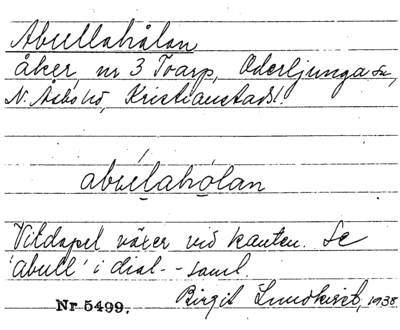 Abullahålan
åker, nr 3 Toarp, Oderljunga sn,
N. Åsbo hd, Kristianstads l.
abúllahólan
Vildapel växer vid kanten. Se
'abull' i dial.-saml.
Birgit Lundkvist, 1938
Nr 5499.